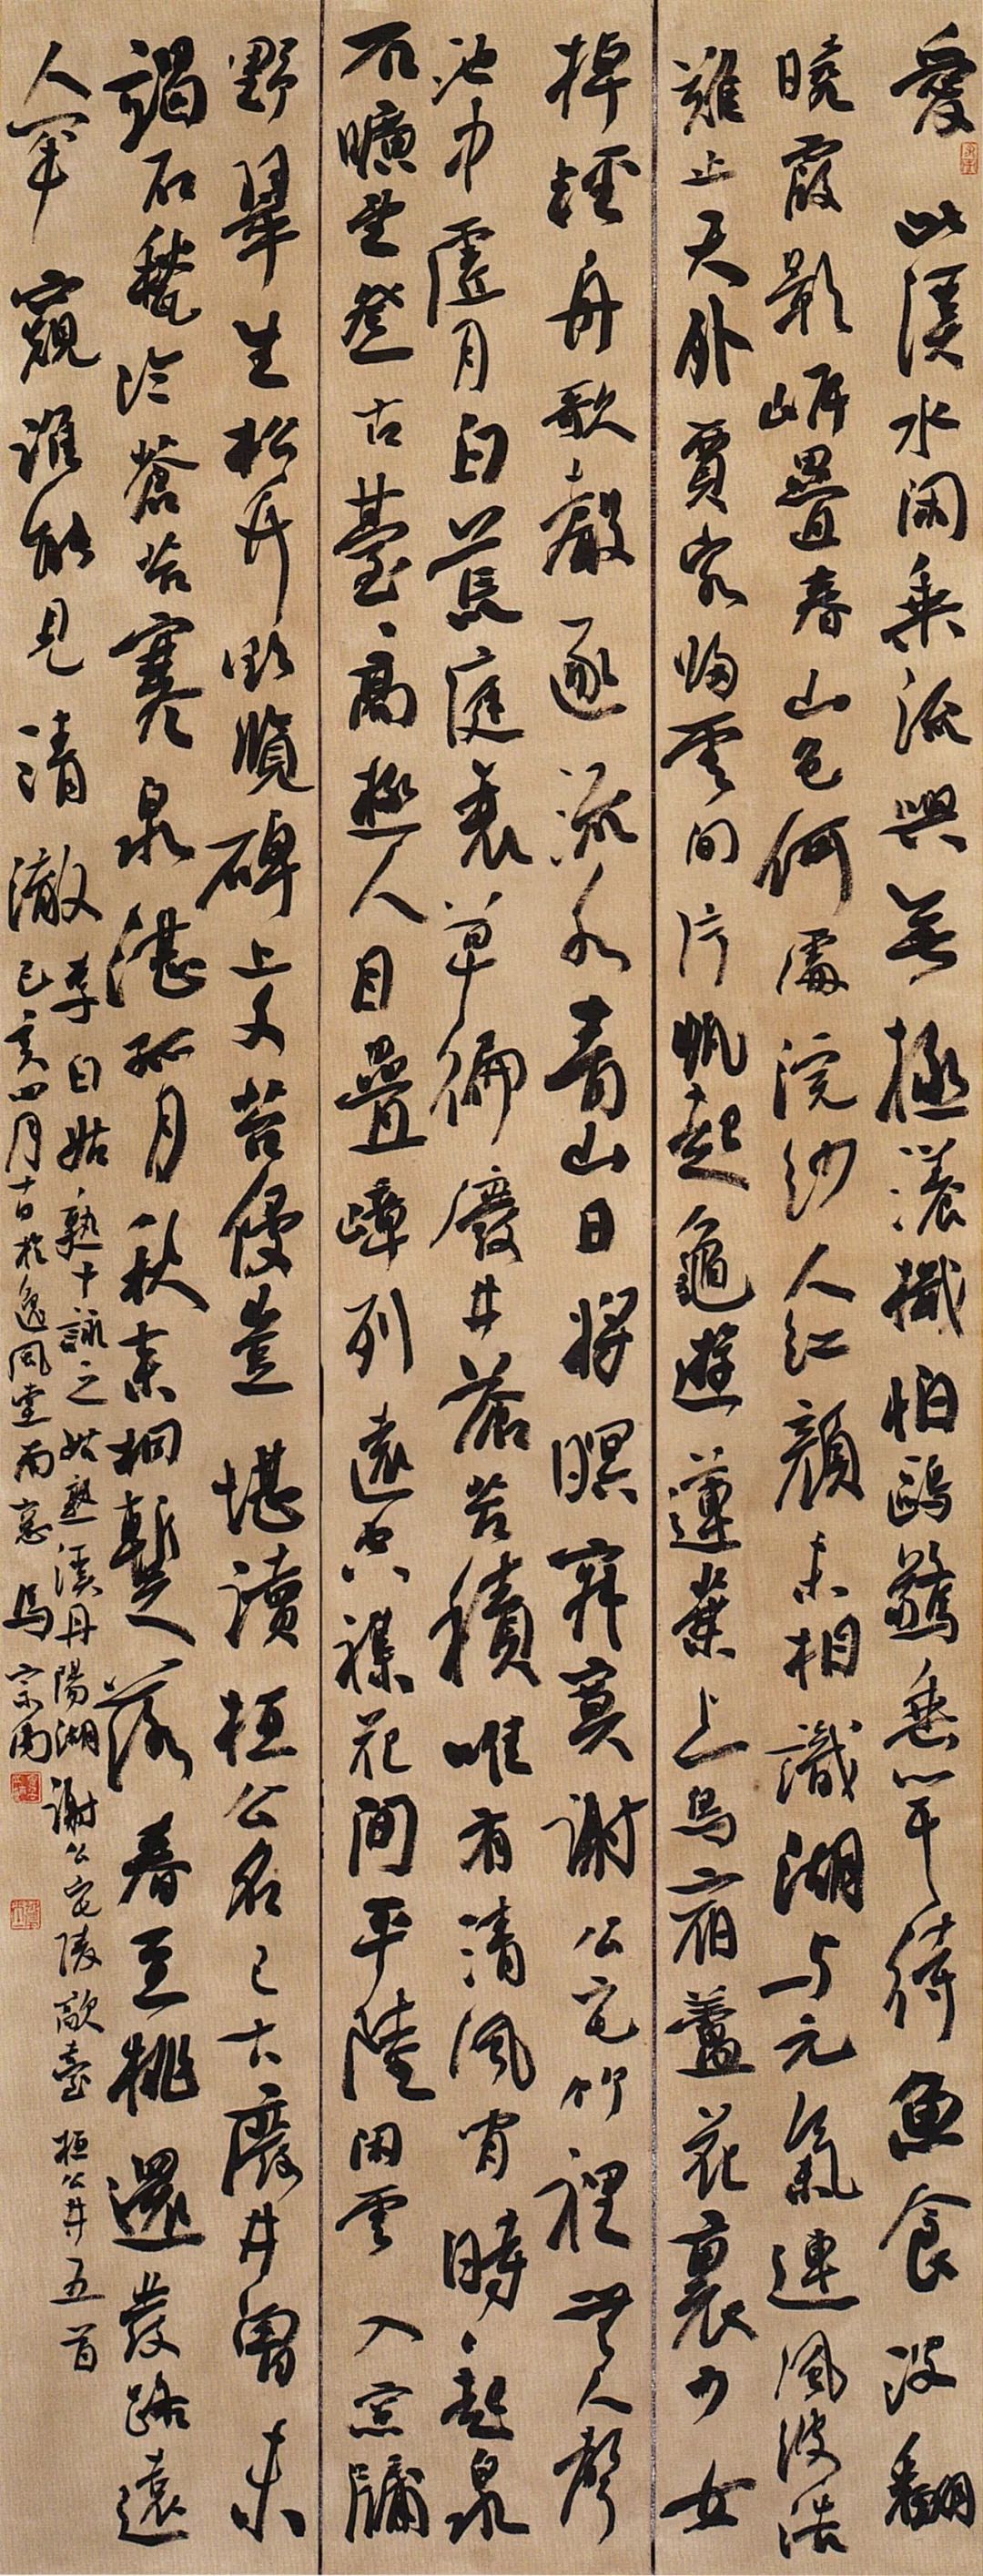 愛此溪水閑乘流興無極漾檝怕鷗驚垂竿待魚食波翻
曉霞影岸疊春山色何處浣紗人紅顏未相識湖与元氣連風波浩
難止天外賈客歸雲間片帆起龜遊蓮葉上鳥宿蘆花裏少女
棹輕舟歌々聲逐流水青山日將暝寂寞謝公宅竹裡無人聲
池中虛月白荒庭衰草徧廢井蒼苔積唯有清風時々起泉
石曠望登古臺々高極人目疊嶂列遠空雜花間平陸閑雲入窗牖
野翠生松竹欲覽碑上文苔侵豈堪讀桓公名已古廢井曾未
竭石甃冷蒼苔寒泉湛孤月秋來桐暫落春至桃還發路遠
人罕窺誰能見清澈
李白姑孰十詠之姑孰溪丹陽湖謝公宅陵歊臺桓公井五首
己亥四月十日於逸風堂南窗 宗